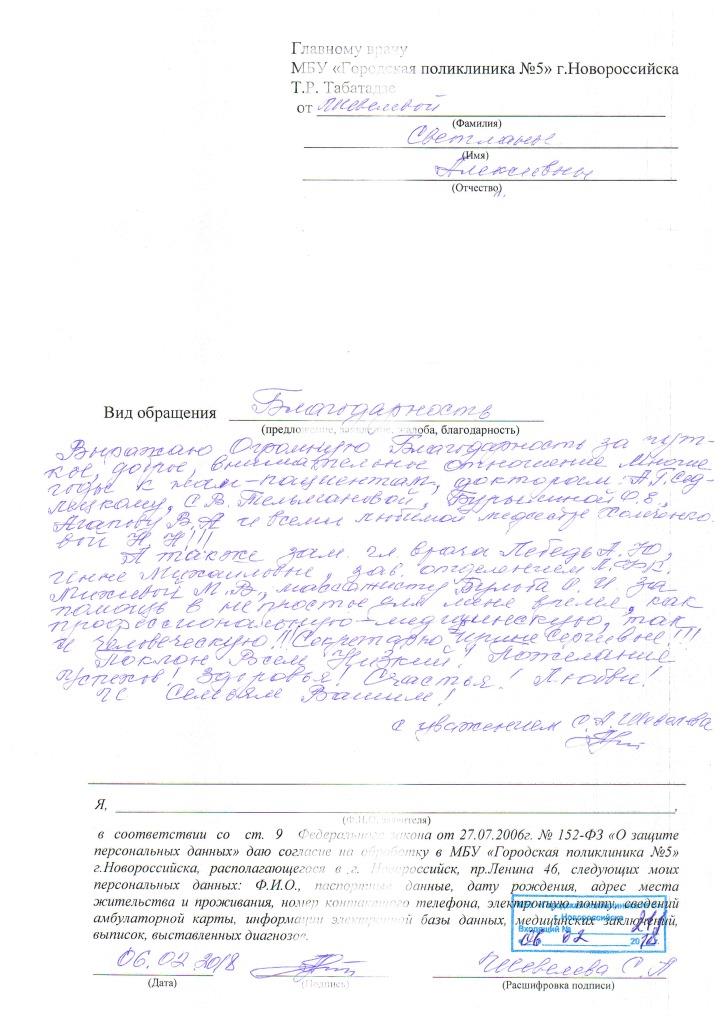 Главному врачу
МБУ «Городская поликлиника №5» г.Новороссийска
Т.Р. Табатадзе
от
(Фамилия)
Светланы
(Имя)
Алексеевны
(Отчество)
Вид обращения Благодарность
(предложение, заявление, жалоба, благодарность)
Выражаю Огромную Благодарность за чут-
кое, доброе, внимательное отношение многие
годы к нам-пациентам, докторам А.Г.Сед-
лецкому, С.В. Тельмановой, Бурыкиной О.Е,
Агапову В.А и всеми любимой медсестре
вой Н.Н!!!
А также зам. гл врача Лебедь А.Ю,
Инне Михайловне, зав. отделением
М.В, массажисту Бульба О.И за
помощь в непростое для меня время, как
профессиональную-медицинскую, так
и человеческую!! Секретарю Ирине Сергеевне!!!
Поклон Всем Низкий! Пожелание
Успехов! Здоровья! Счастья! Любви!
И Семьям Вашим!
с уважением С.А.Шевелева
Я,
(Ф.И.О. заявителя)
в соответствии со ст. 9 Федерального закона от 27.07.2006г. № 152-ФЗ «О защите
персональных данных» даю согласие на обработку в МБУ «Городская поликлиника №5»
г.Новороссийска, располагающегося в г. Новороссийск, пр.Ленина 46, следующих моих
персональных данных: Ф.И.О., паспортные данные, дату рождения, адрес места
жительства и проживания, номер контактного телефона, электронную почту, сведений
амбулаторной карты, информации электронной базы данных, медицинских заключений,
выписок, выставленных диагнозов.
г. Новороссийска
Входящий № 211
06 02 2018г.
06.02 2018
Шевелева С.А
(Дата) (Подпись) (Расшифровка подписи)